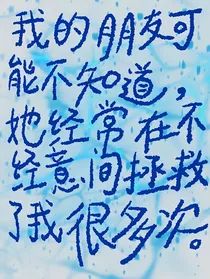 我的朋友可
能不知道，
她经常在不
经意间拯救
了我很多次。